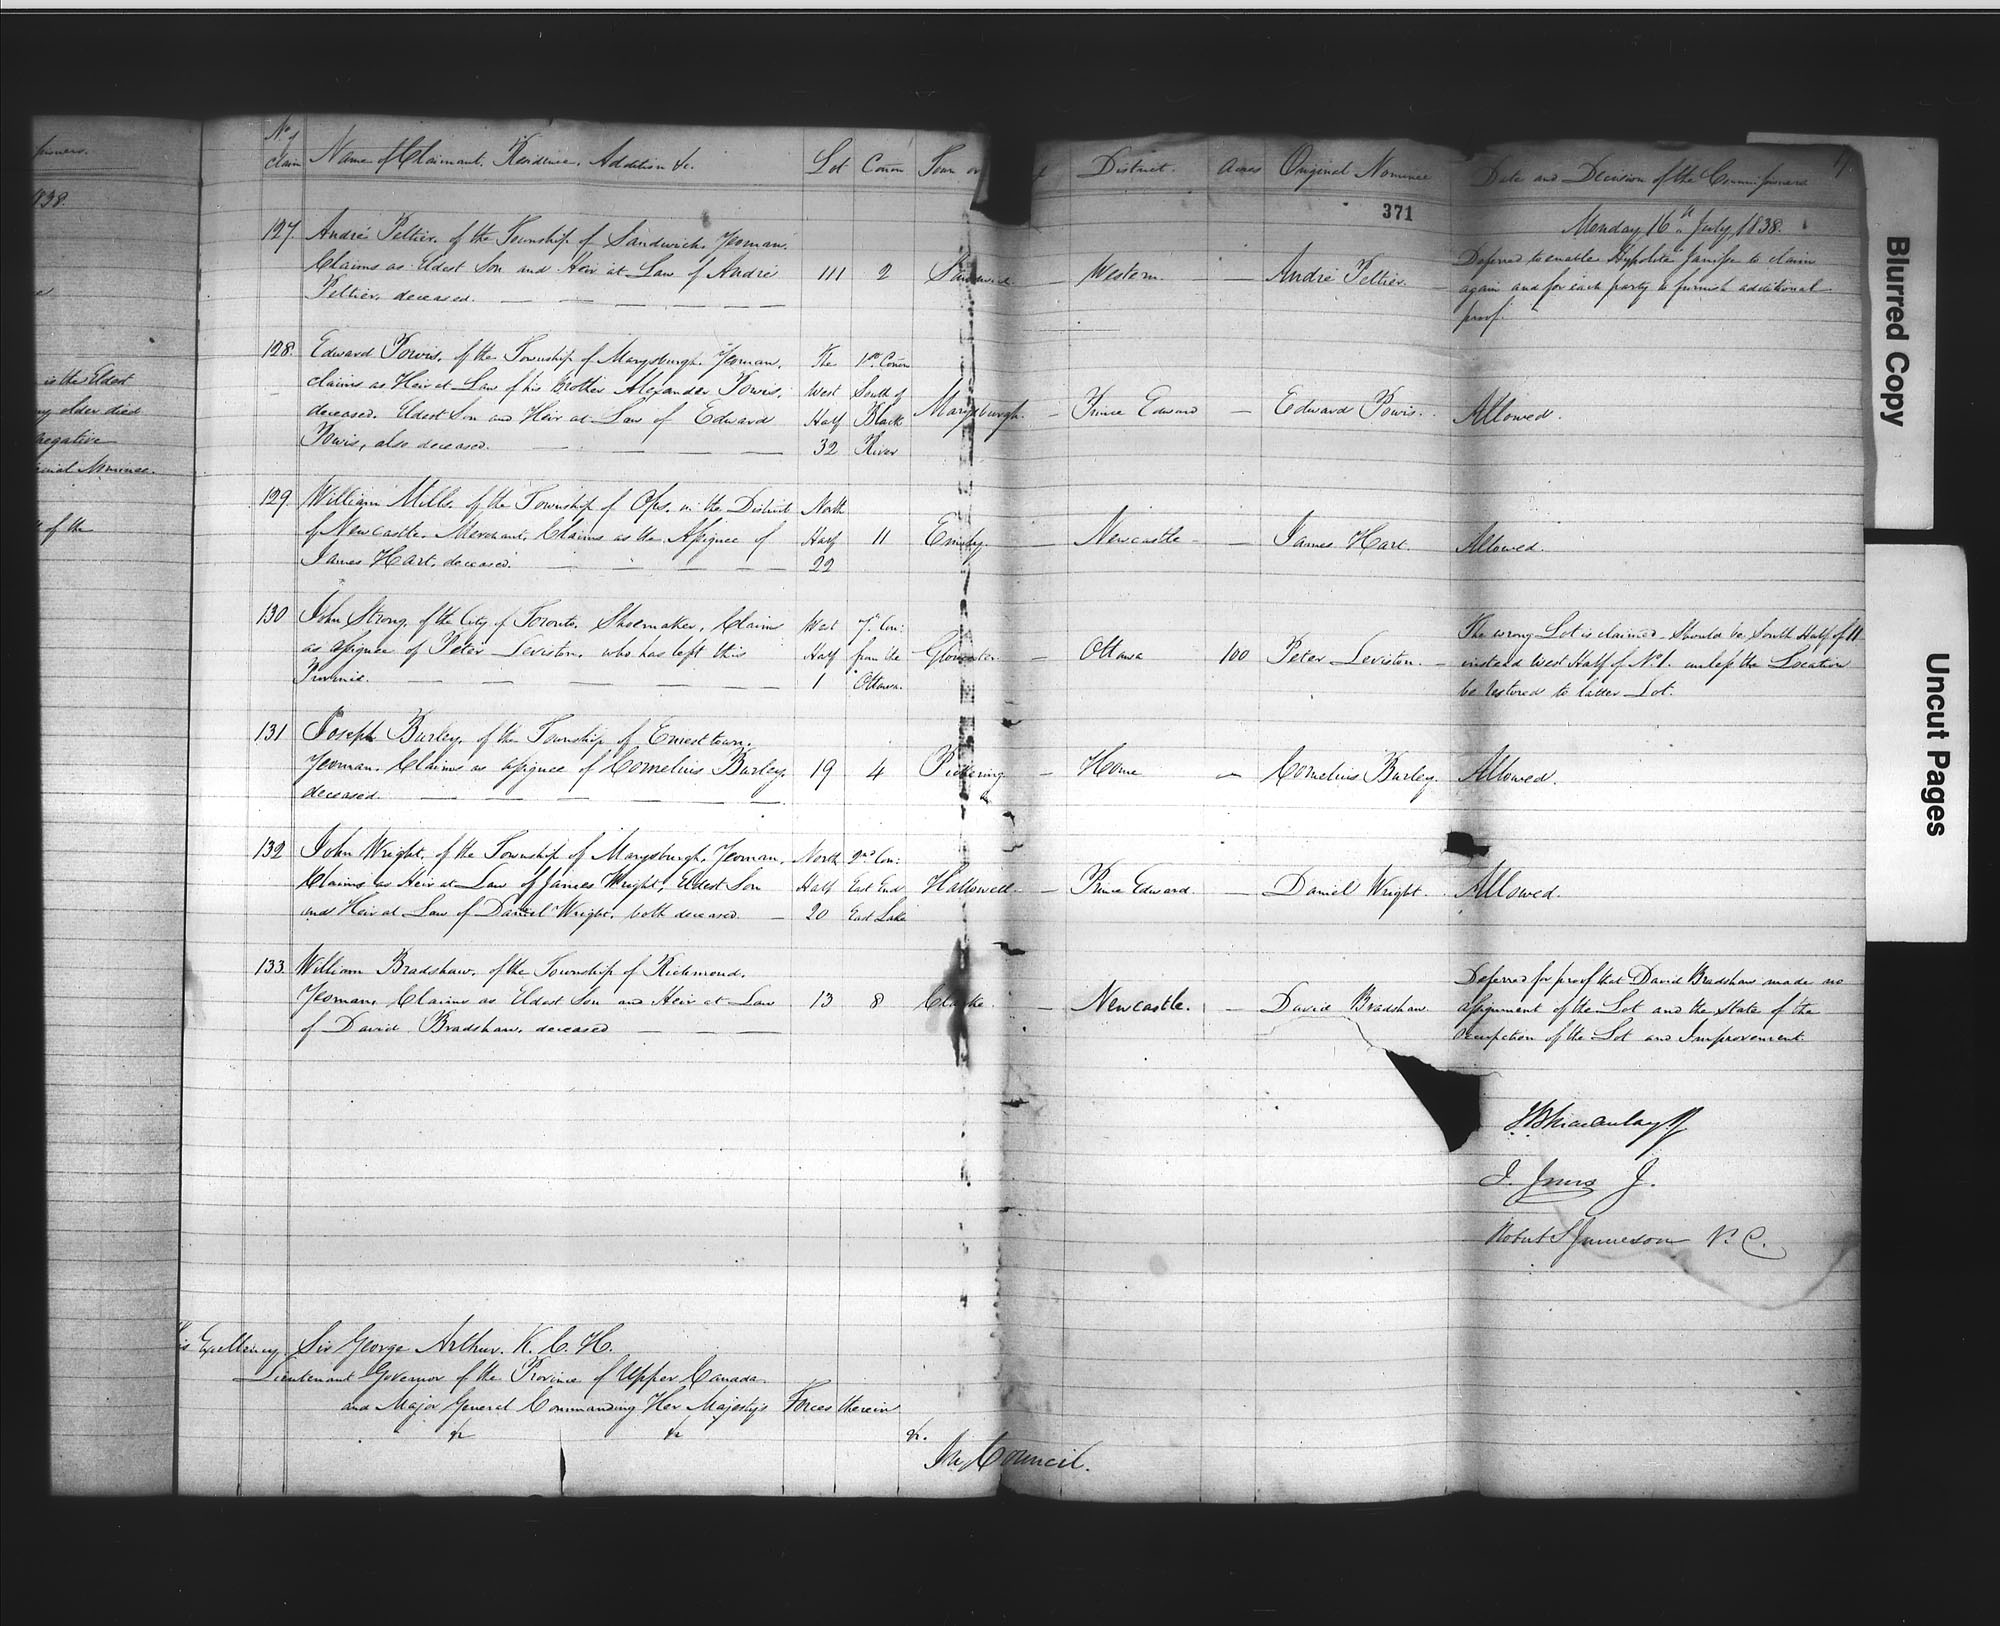 No of claim Name of Claimant. Residence. Addition &c. Lot Conon Town District. Acres Original Nominee Date and Decision of the Commissioners
371
1838.
Monday 16th July, 1838.
127. André Peltier, of the Township of Sandwich, Yeoman.
Claims as Eldest Son and Heir at Law of André
Peltier, deceased.
111 2 Sandwich Western André Peltier
Deferred to enable Hypolite Janisse to claim
again and for each party to furnish additional
proof.
128. Edward Powis, of the Township of Marysburgh, Yeoman,
claims as Heir at Law of his Brother Alexander Powis,
deceased, Eldest Son and Heir at Law of Edward
Powis, also deceased.
The West Half 32
1st Conon South of Black River
Marysburgh Prince Edward Edward Powis. Allowed.
129. William Mills, of the Township of Ops, in the District
of Newcastle, Merchant, Claims as the Assignee of
James Hart, deceased.
North Half 22
11 Emily Newcastle James Hart. Allowed.
130 John Strong, of the City of Toronto, Shoemaker, Claims
as assignee of Peter Leviston, who has left this
Province.
West Half 1
7th Con: from the Ottawa.
Gloucester Ottawa 100 Peter Leviston.
The wrong Lot is claimed. Should be South Half of 11
instead West Half of No 1. unless the Location
be restored to latter Lot.
131 Joseph Burley, of the Township of Ernest town,
Yeoman. Claims as assignee of Cornelius Burley,
deceased.
19 4 Pickering Home Cornelius Burley. Allowed.
132 John Wright, of the Township of Marysburgh, Yeoman,
Claims as Heir at Law of James Wright, Eldest Son
and Heir at Law of Daniel Wright, both deceased.
North Half 20
2nd Con: East End East Lake
Hallowell Prince Edward Daniel Wright. Allowed.
133 William Bradshaw, of the Township of Richmond,
Yeoman, Claims as Eldest Son and Heir at Law
of David Bradshaw, deceased
13 8 Clarke Newcastle. David Bradshaw
Deferred for proof that David Bradshaw made no
assignment of the Lot and the state of the
occupation of the Lot and Improvement.
is the Eldest
older died
negative
Nominee.
of the
J B Macaulay J
J. Jones J.
Robert S Jameson V. C.
His Excellency, Sir George Arthur, K. C. H.
Lieutenant Governor of the Province of Upper Canada
and Major General Commanding Her Majesty's Forces therein
&c &c &c.
In Council.
Blurred Copy
Uncut Pages